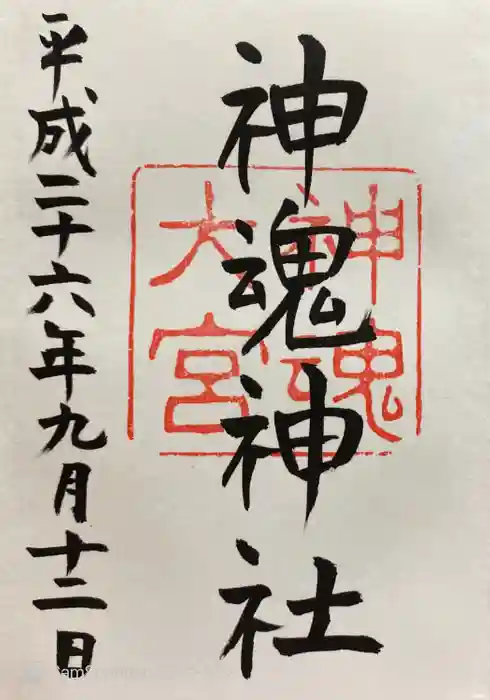 神魂神社
神魂
大宮
平成二十六年九月十二日